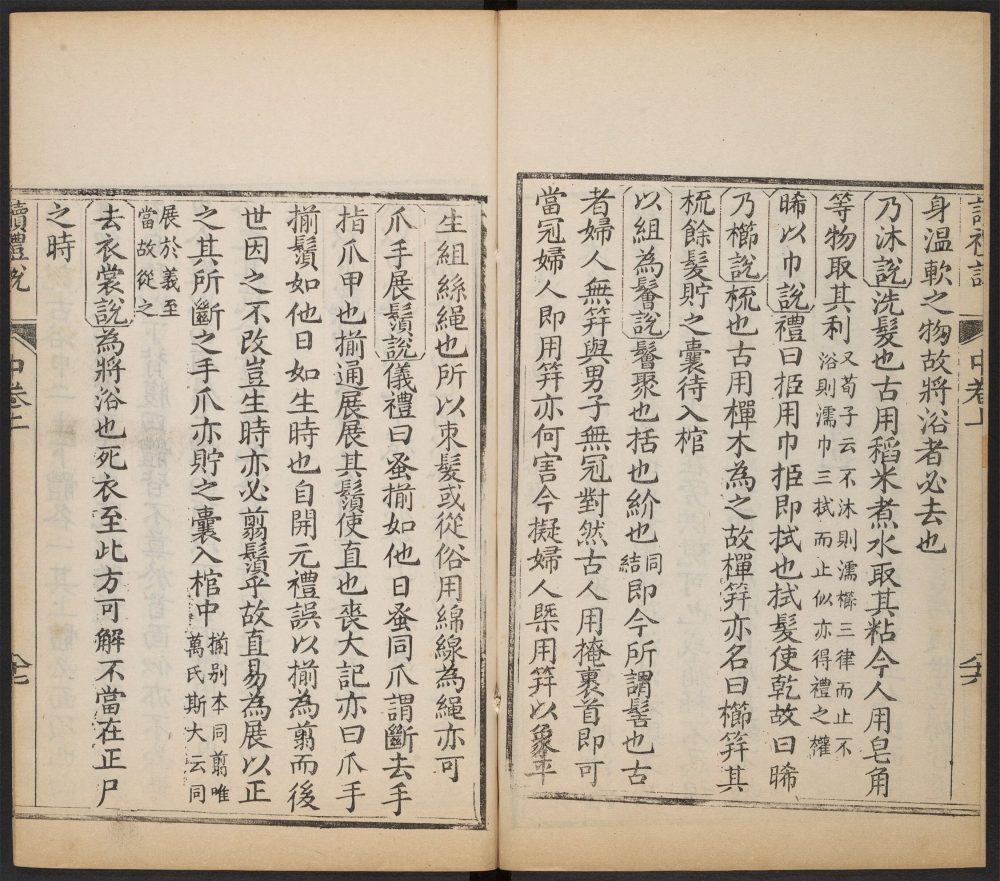 身溫軟之物故將浴者必去也
乃沐說洗髮也古用稻米煮水取其粘今人用皂角
等物取其利又荀子云不沐則濡櫛三律而止不浴則濡巾三拭而止似亦得禮之權
晞以巾說禮曰挋用巾挋即拭也拭髮使乾故曰晞
乃櫛說梳也古用樿木為之故樿笄亦名曰櫛笄其
梳餘髮貯之囊待入棺
以組為鬠說鬠聚也括也紒也同結即今所謂髻也古
者婦人無笄與男子無冠對然古人用掩裹首即可
當冠婦人即用笄亦何害今擬婦人槩用笄以象平
生組絲繩也所以束髮或從俗用綿線為繩亦可
爪手展鬚說儀禮曰蚤揃如他日蚤同爪謂斷去手
指爪甲也揃通展展其鬚使直也喪大記亦曰爪手
揃鬚如他日如生時也自開元禮誤以揃為翦而後
世因之不改豈生時亦必翦鬚乎故直易為展以正
之其所斷之手爪亦貯之囊入棺中揃别本同翦唯萬氏斯大云同
展於義至當故從之
去衣裳說為將浴也死衣至此方可解不當在正尸
之時
讀禮說
中卷上